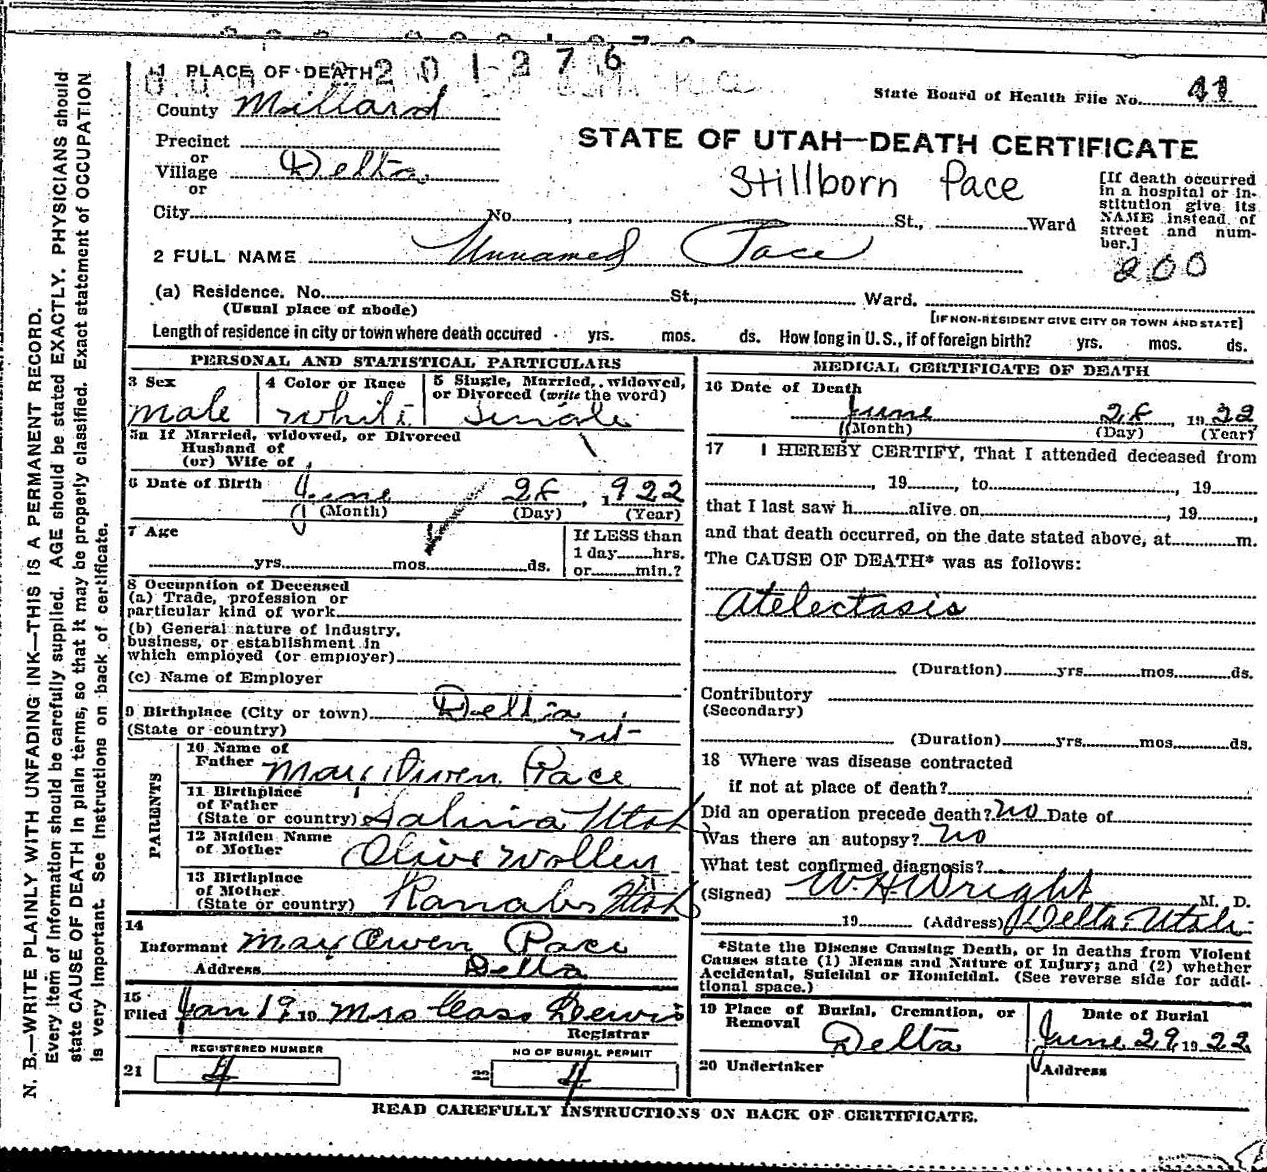 201276
1 PLACE OF DEATH
State Board of Health File No. 41
County Millard
STATE OF UTAH—DEATH CERTIFICATE
Precinct
or
Village Delta
or
Stillborn Pace
[If death occurred in a hospital or institution give its NAME instead of street and number.]
City No. , St., Ward
200
2 FULL NAME Unnamed Pace
(a) Residence. No. St., Ward.
(Usual place of abode)
[IF NON-RESIDENT GIVE CITY OR TOWN AND STATE]
Length of residence in city or town where death occured yrs. mos. ds. How long in U.S., if of foreign birth? yrs. mos. ds.
PERSONAL AND STATISTICAL PARTICULARS
3 Sex
Male
4 Color or Race
White
5 Single, Married, widowed,
or Divorced (write the word)
Single
5a If Married, widowed, or Divorced
Husband of
(or) Wife of
6 Date of Birth
June 28, 1922
(Month) (Day) (Year)
7 Age
yrs. mos. ds.
If LESS than
1 day hrs.
or min.?
8 Occupation of Deceased
(a) Trade, profession or
particular kind of work
(b) General nature of industry,
business, or establishment in
which employed (or employer)
(c) Name of Employer
9 Birthplace (City or town) Delta
(State or country) Ut
PARENTS
10 Name of
Father Max Owen Pace
11 Birthplace
of Father
(State or country) Salina Utah
12 Maiden Name
of Mother Olive Wollen
13 Birthplace
of Mother
(State or country) Kanab Utah
14
Informant Max Owen Pace
Address Delta
15
Filed Jan 19 19 Mrs Cass Lewis
Registrar
REGISTERED NUMBER
21 4
NO OF BURIAL PERMIT
22 4
MEDICAL CERTIFICATE OF DEATH
16 Date of Death
June 28, 1922
(Month) (Day) (Year)
17 I HEREBY CERTIFY, That I attended deceased from
, 19 , to , 19
that I last saw h alive on , 19 ,
and that death occurred, on the date stated above, at m.
The CAUSE OF DEATH* was as follows:
Atelectasis
(Duration) yrs. mos. ds.
Contributory
(Secondary)
(Duration) yrs. mos. ds.
18 Where was disease contracted
if not at place of death?
Did an operation precede death? no Date of
Was there an autopsy? no
What test confirmed diagnosis?
(Signed) W. H Wright M. D.
19 (Address) Delta, Utah
*State the Disease Causing Death, or in deaths from Violent
Causes state (1) Means and Nature of Injury; and (2) whether
Accidental, Suicidal or Homicidal. (See reverse side for addi-
tional space.)
19 Place of Burial, Cremation, or
Removal
Delta
Date of Burial
June 29, 1922
20 Undertaker
Address
READ CAREFULLY INSTRUCTIONS ON BACK OF CERTIFICATE.
N. B.—WRITE PLAINLY WITH UNFADING INK—THIS IS A PERMANENT RECORD.
Every item of information should be carefully supplied. AGE should be stated EXACTLY. PHYSICIANS should
state CAUSE OF DEATH in plain terms, so that it may be properly classified. Exact statement of OCCUPATION
is very important. See instructions on back of certificate.